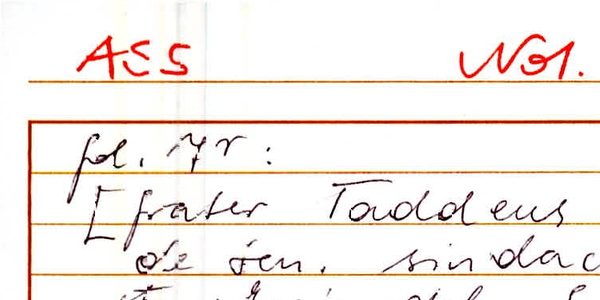 ASS Not.
fol. 7r:
[frater Taddeus
de sen. sindac